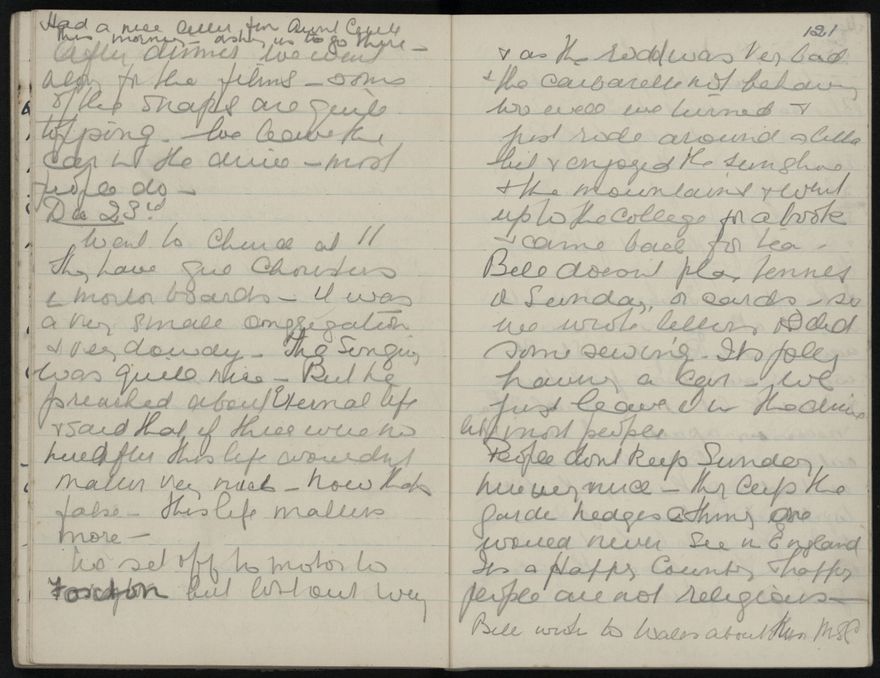 Had a nice letter from Aunt
this morning - asking us to go there -
After dinner we went
along for the films - some
of the snaps are quite
topping. We leave the
car in the drive - most
people do -
Dec 23rd
Went to Church at 11
They have girl Choristers
in mortor boards - it was
a very small congregation
& very dowdy - The Singing
was quite nice - But he
preached about Eternal life
& said that if there were no
hereafter this life wouldnt
matter very much - now thats
false - this life matters
more -
We set off to motor to
but lost our way
121
& as the road was very bad
& the car not behaving
too well we turned &
just rode around a little
bit & enjoyed the sunshine
& the mountains & went
up to the College for a book
& came back for tea -
Bill doesnt play tennis
on Sunday, or cards - so
we wrote letters & I did
some sewing. Its jolly
having a car - we
just leave it in the drive
like most people
People dont keep Sunday
here very nice - they clip the
garden hedges & things one
would never see in England
Its a Happy Country & happy
people are not religious -
Bill went to about this